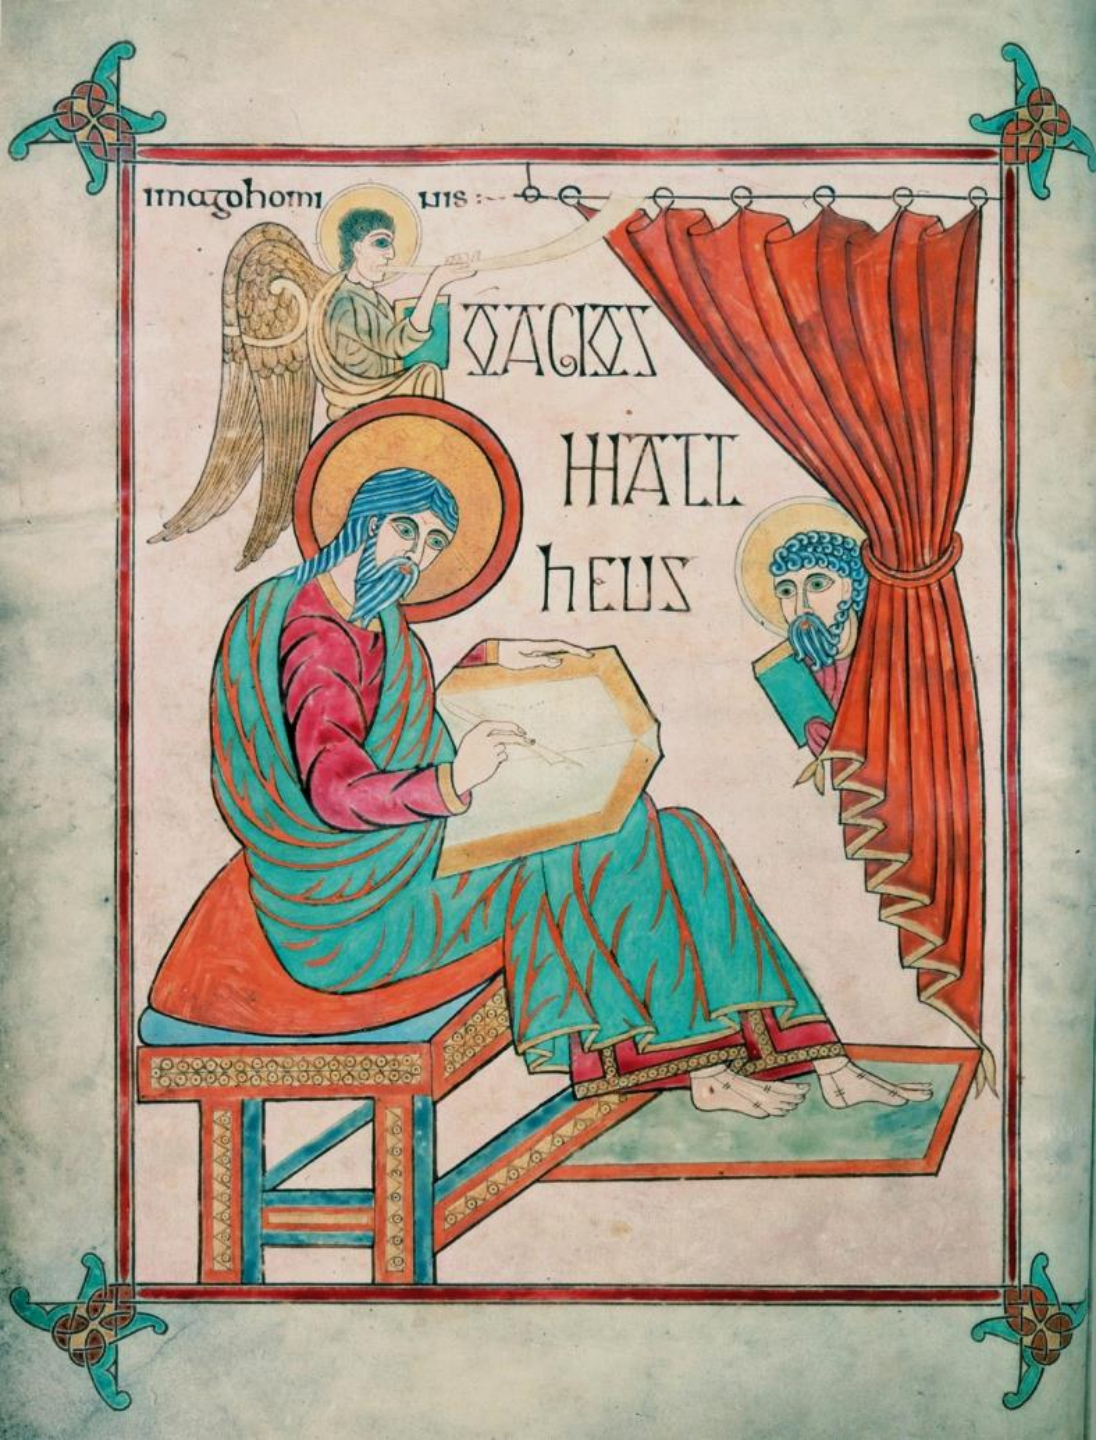 imago homi nis :·
O AGIOS
MATT
hEUS